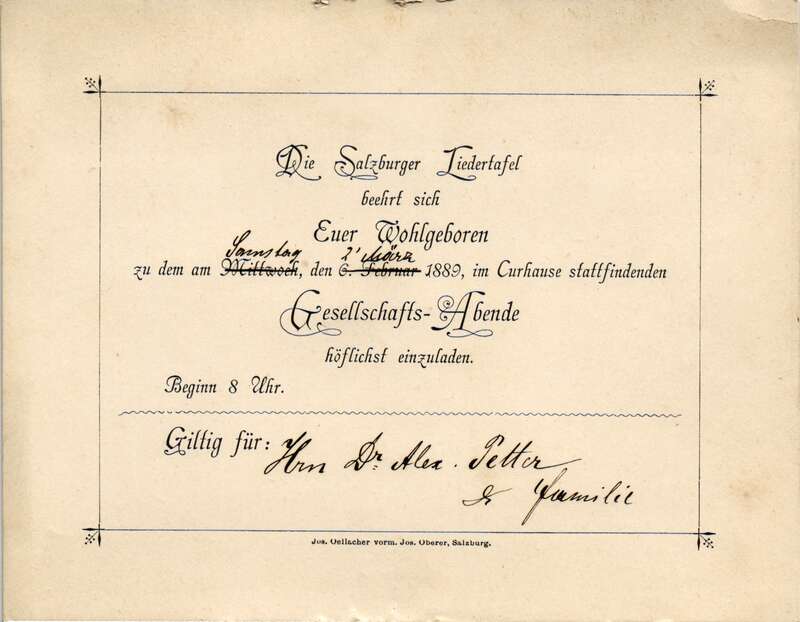 Die Salzburger Liedertafel
beehrt sich
Euer Wohlgeboren
Samstag 2' März
zu dem am Mittwoch, den 6. Februar 1889, im Curhause stattfindenden
Gesellschafts-Abende
höflichst einzuladen.
Beginn 8 Uhr.
Giltig für: Hrn Dr. Alex. Petter
& Familie
Jos. Oellacher vorm. Jos. Oberer, Salzburg.